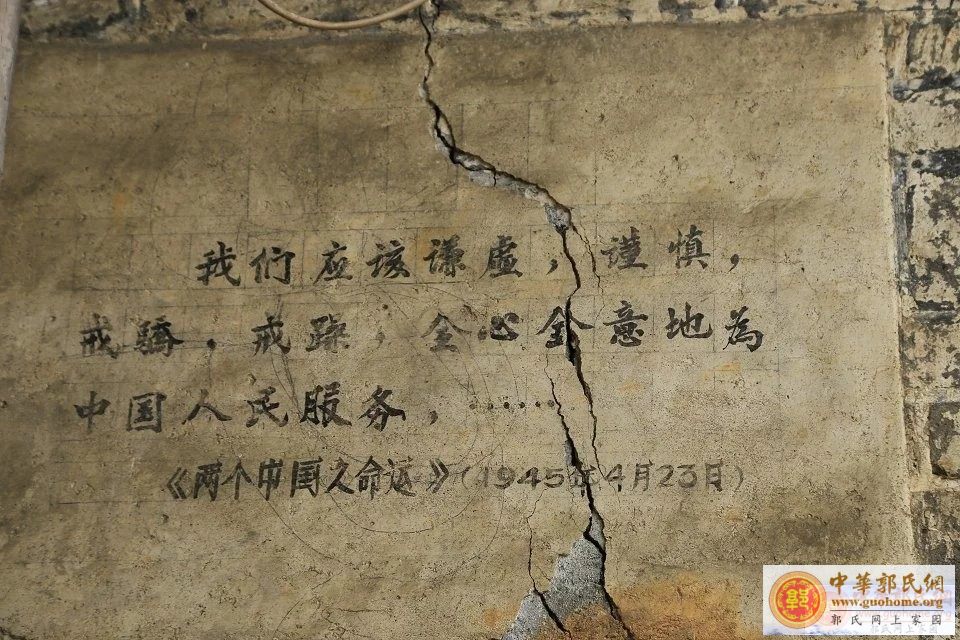 我们应该谦虚，谨慎，
戒骄，戒躁，全心全意地为
中国人民服务，……
《两个中国之命运》（1945年4月23日）
中華郭氏網
www.guohome.org
郭氏网上家园